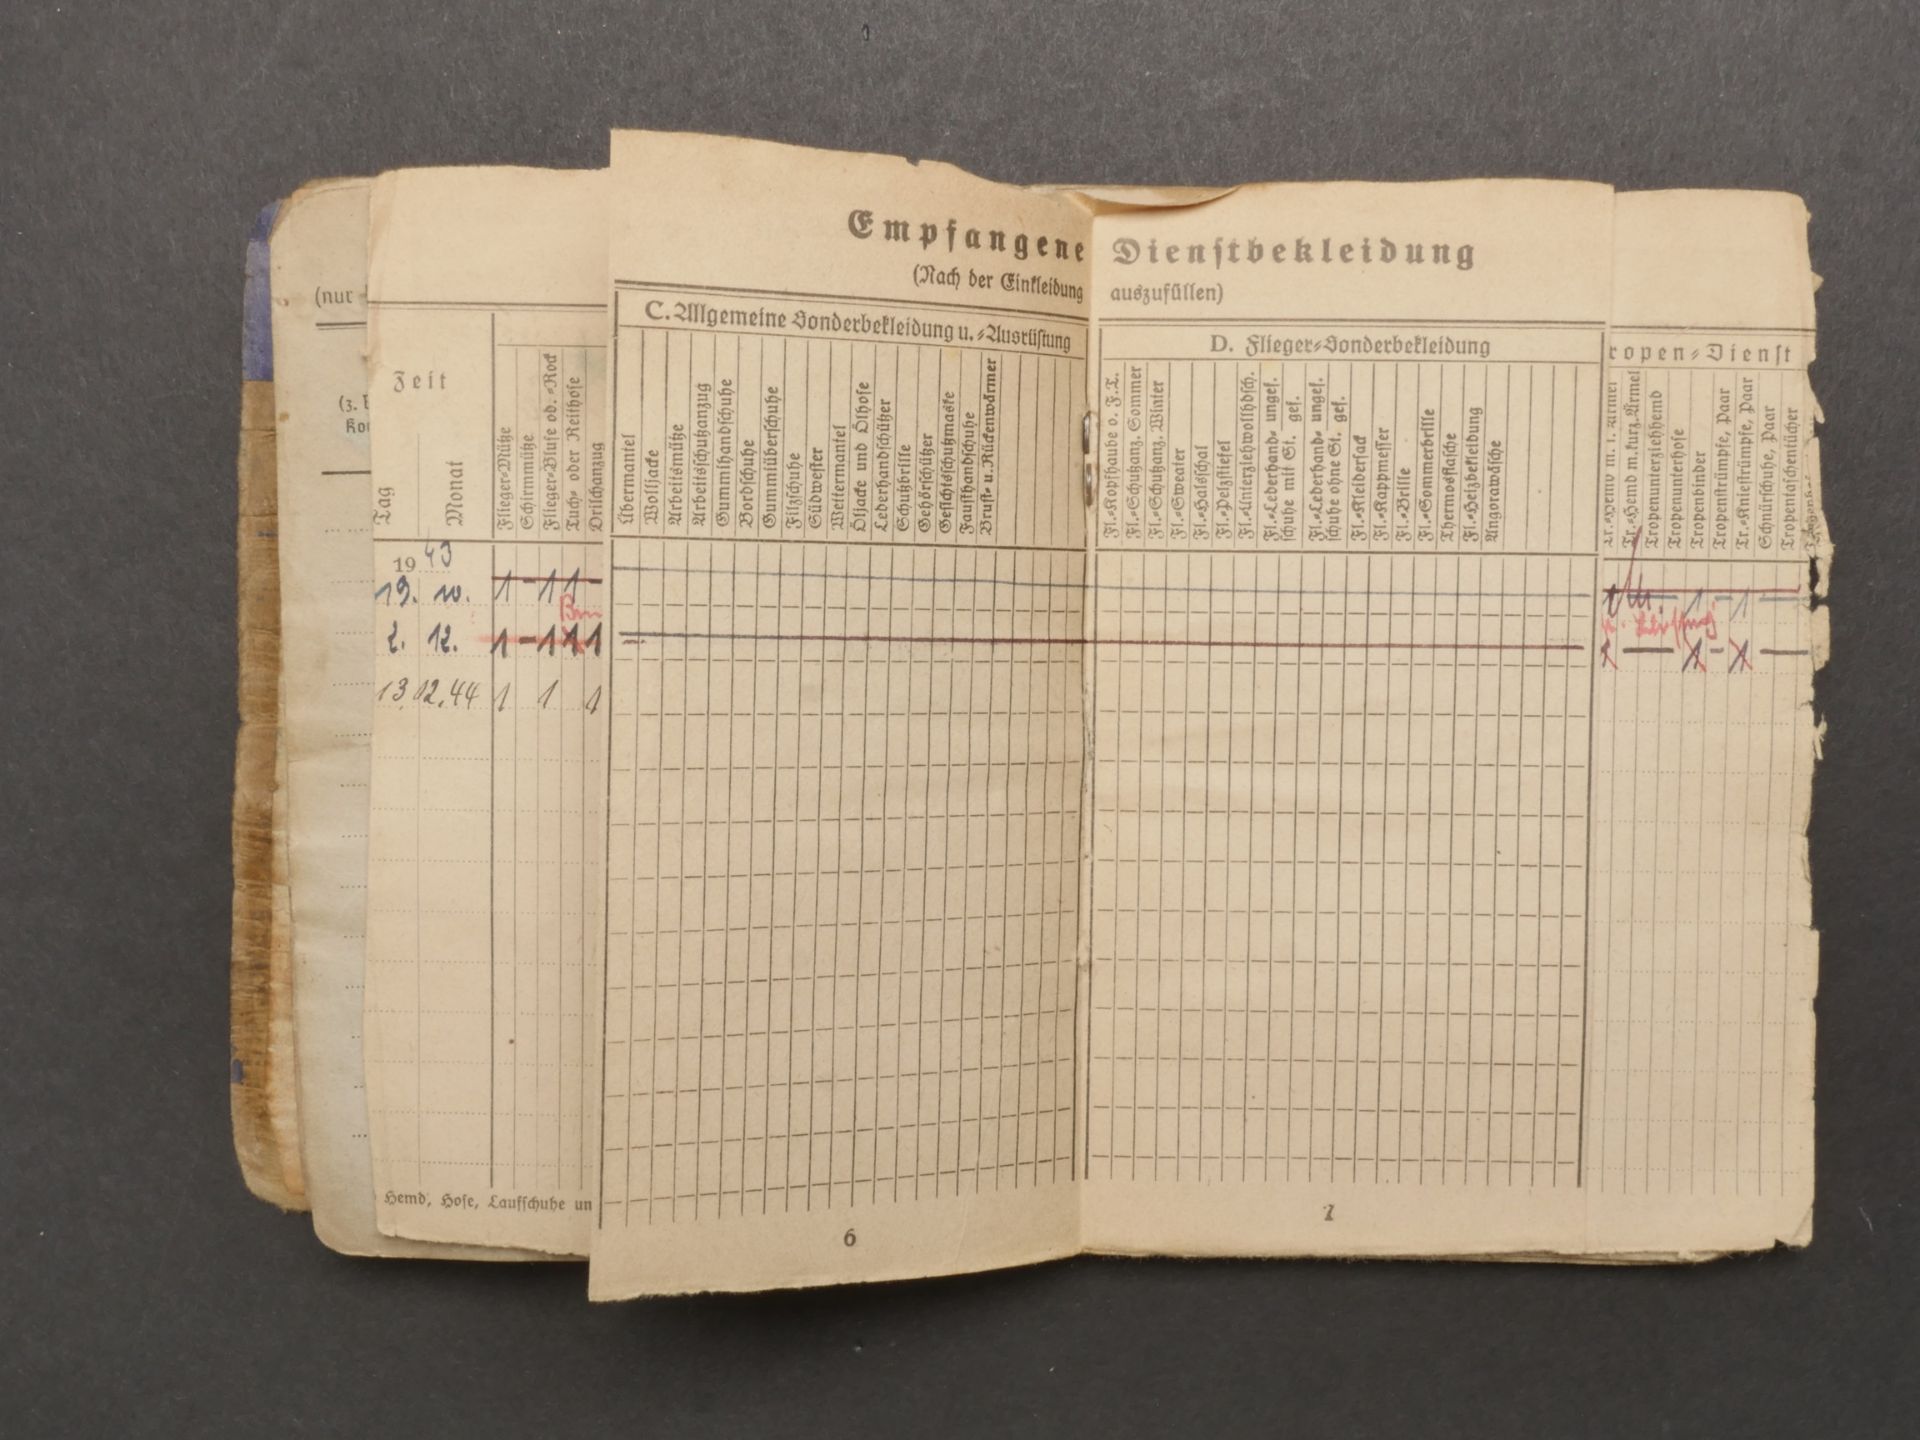 Empfangene Dienstbekleidung
(Nach der Einkleidung auszufüllen)
(nur
(z. B
Zeit
Tag
Monat
Flieger-Mütze
Schirmmütze
Flieger-Bluse od. -Rock
Tuch- oder Reithose
Drilchanzug
C. Allgemeine Sonderbekleidung u. -Ausrüstung
Übermantel
Wolljacke
Arbeitsmütze
Arbeitsschutzanzug
Gummihandschuhe
Bordschuhe
Gummiüberschuhe
Filzschuhe
Südwester
Wettermantel
Öljacke und Ölhose
Lederhandschützer
Schutzbrille
Gehörschützer
Gesichtsschutzmaske
Fausthandschuhe
Brust- u. Rückenwärmer
D. Flieger-Sonderbekleidung
Fl.-Kopfhaube o. F.T.
Fl.-Schutzanz. Sommer
Fl.-Schutzanz. Winter
Fl.-Sweater
Fl.-Halsschal
Fl.-Pelzstiefel
Fl.-Unterziehwollhdsch.
Fl.-Lederhand- ungef.
schuhe mit St. gef.
Fl.-Lederhand- ungef.
schuhe ohne St. gef.
Fl.-Kleidersack
Fl.-Kappmesser
Fl.-Brille
Fl.-Sommerbrille
Thermosflasche
Fl.-Heizbekleidung
Angorawäsche
ropen-Dienst
Tr.-Hemd m. l. Ärmel
Tr.-Hemd m. kurz. Ärmel
Tropenunterziehhemd
Tropenunterhose
Tropenbinder
Tropenstrümpfe, Paar
Tr.-Kniestrümpfe, Paar
Schnürschuhe, Paar
Tropentaschentücher
19 43
19. 10. 1 - 1 1 - 1 - 1
2. 12. 1 - 1 1 1 1 - 1
13.12.44 1 1 1
Hemd, Hose, Laufschuhe un
6
7